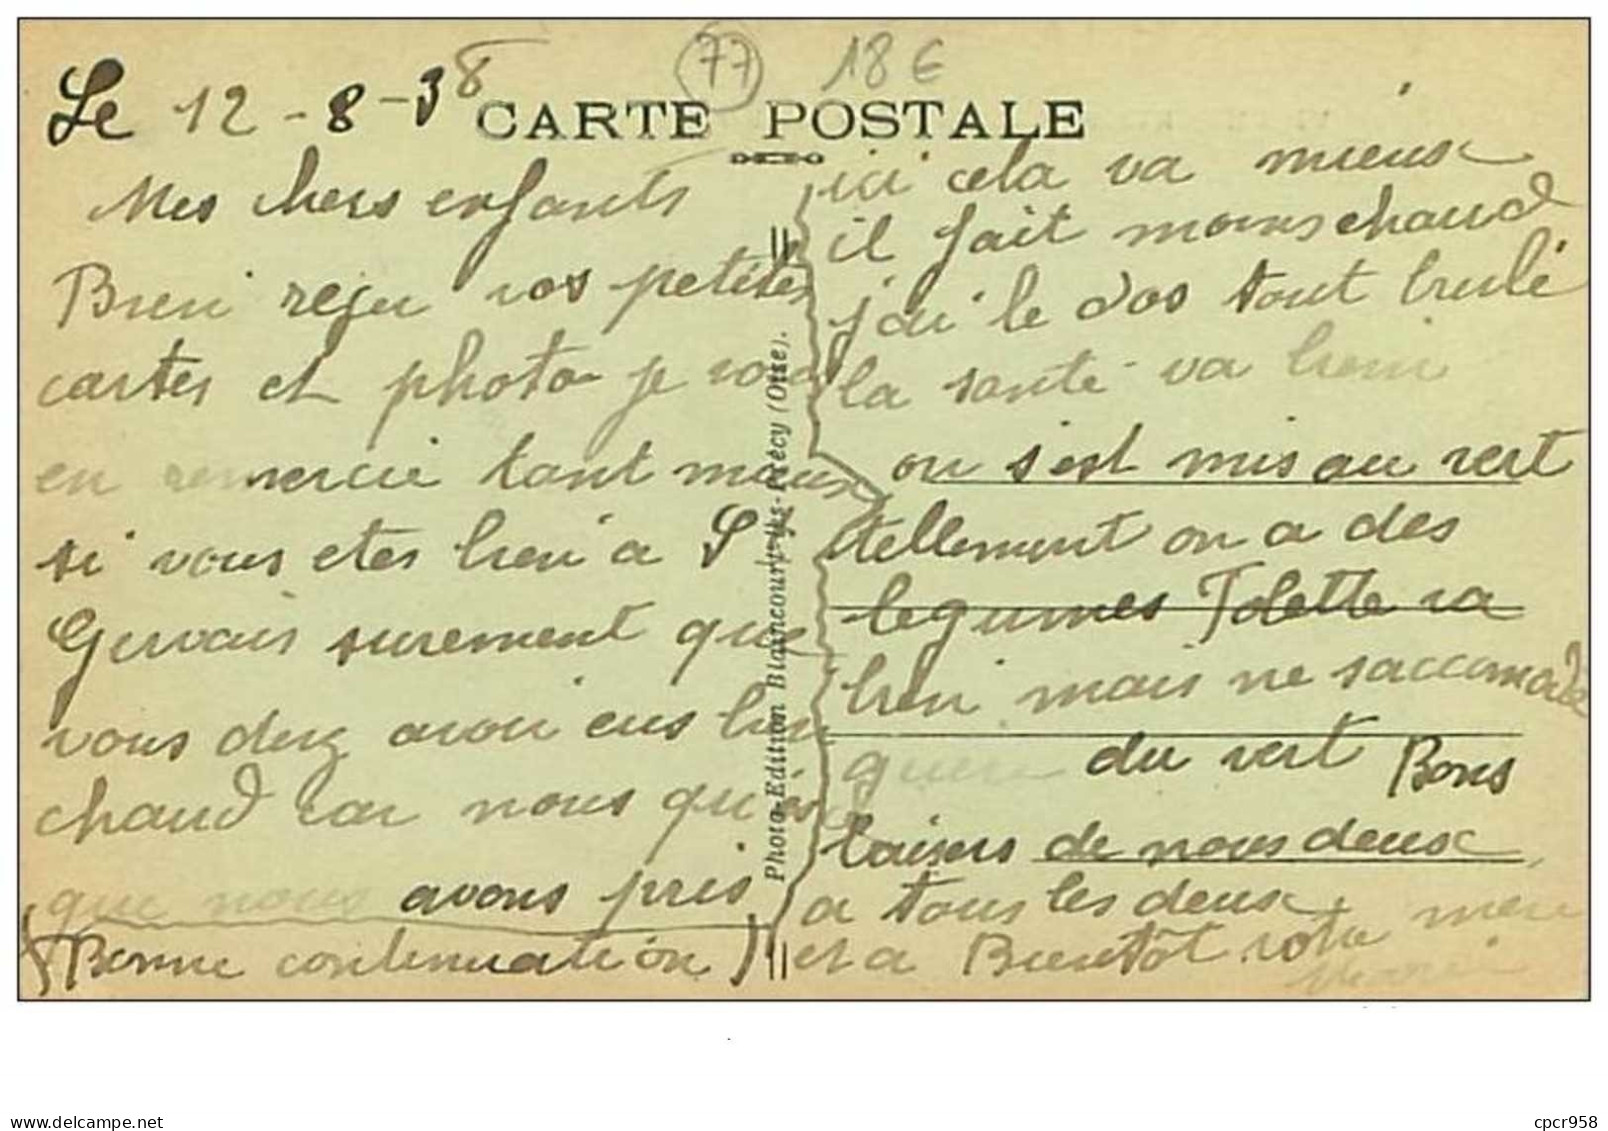 77 18 €
Le 12-8-38
CARTE POSTALE
Mes chers enfants
Bien reçu vos petites
cartes et photo je vous
en remercie tant mieux
si vous etes bien a St
Gervais surement que
vous devez avoir eus bien
chaud car nous qu'est ce
que nous avons pris
(Bonne continuation)
ici cela va mieux
il fait moins chaud
j'ai le dos tout brulé
la santé va bien
on s'est mis au vert
tellement on a des
legumes Tolette va
bien mais ne saccomode
guere du vert Bons
baisers de nous deux
a tous les deux
et a Bientôt votre mere
Marie
Photo-Edition Blaincourt-lès-Précy (Oise).
delcampe.net
cpcr958